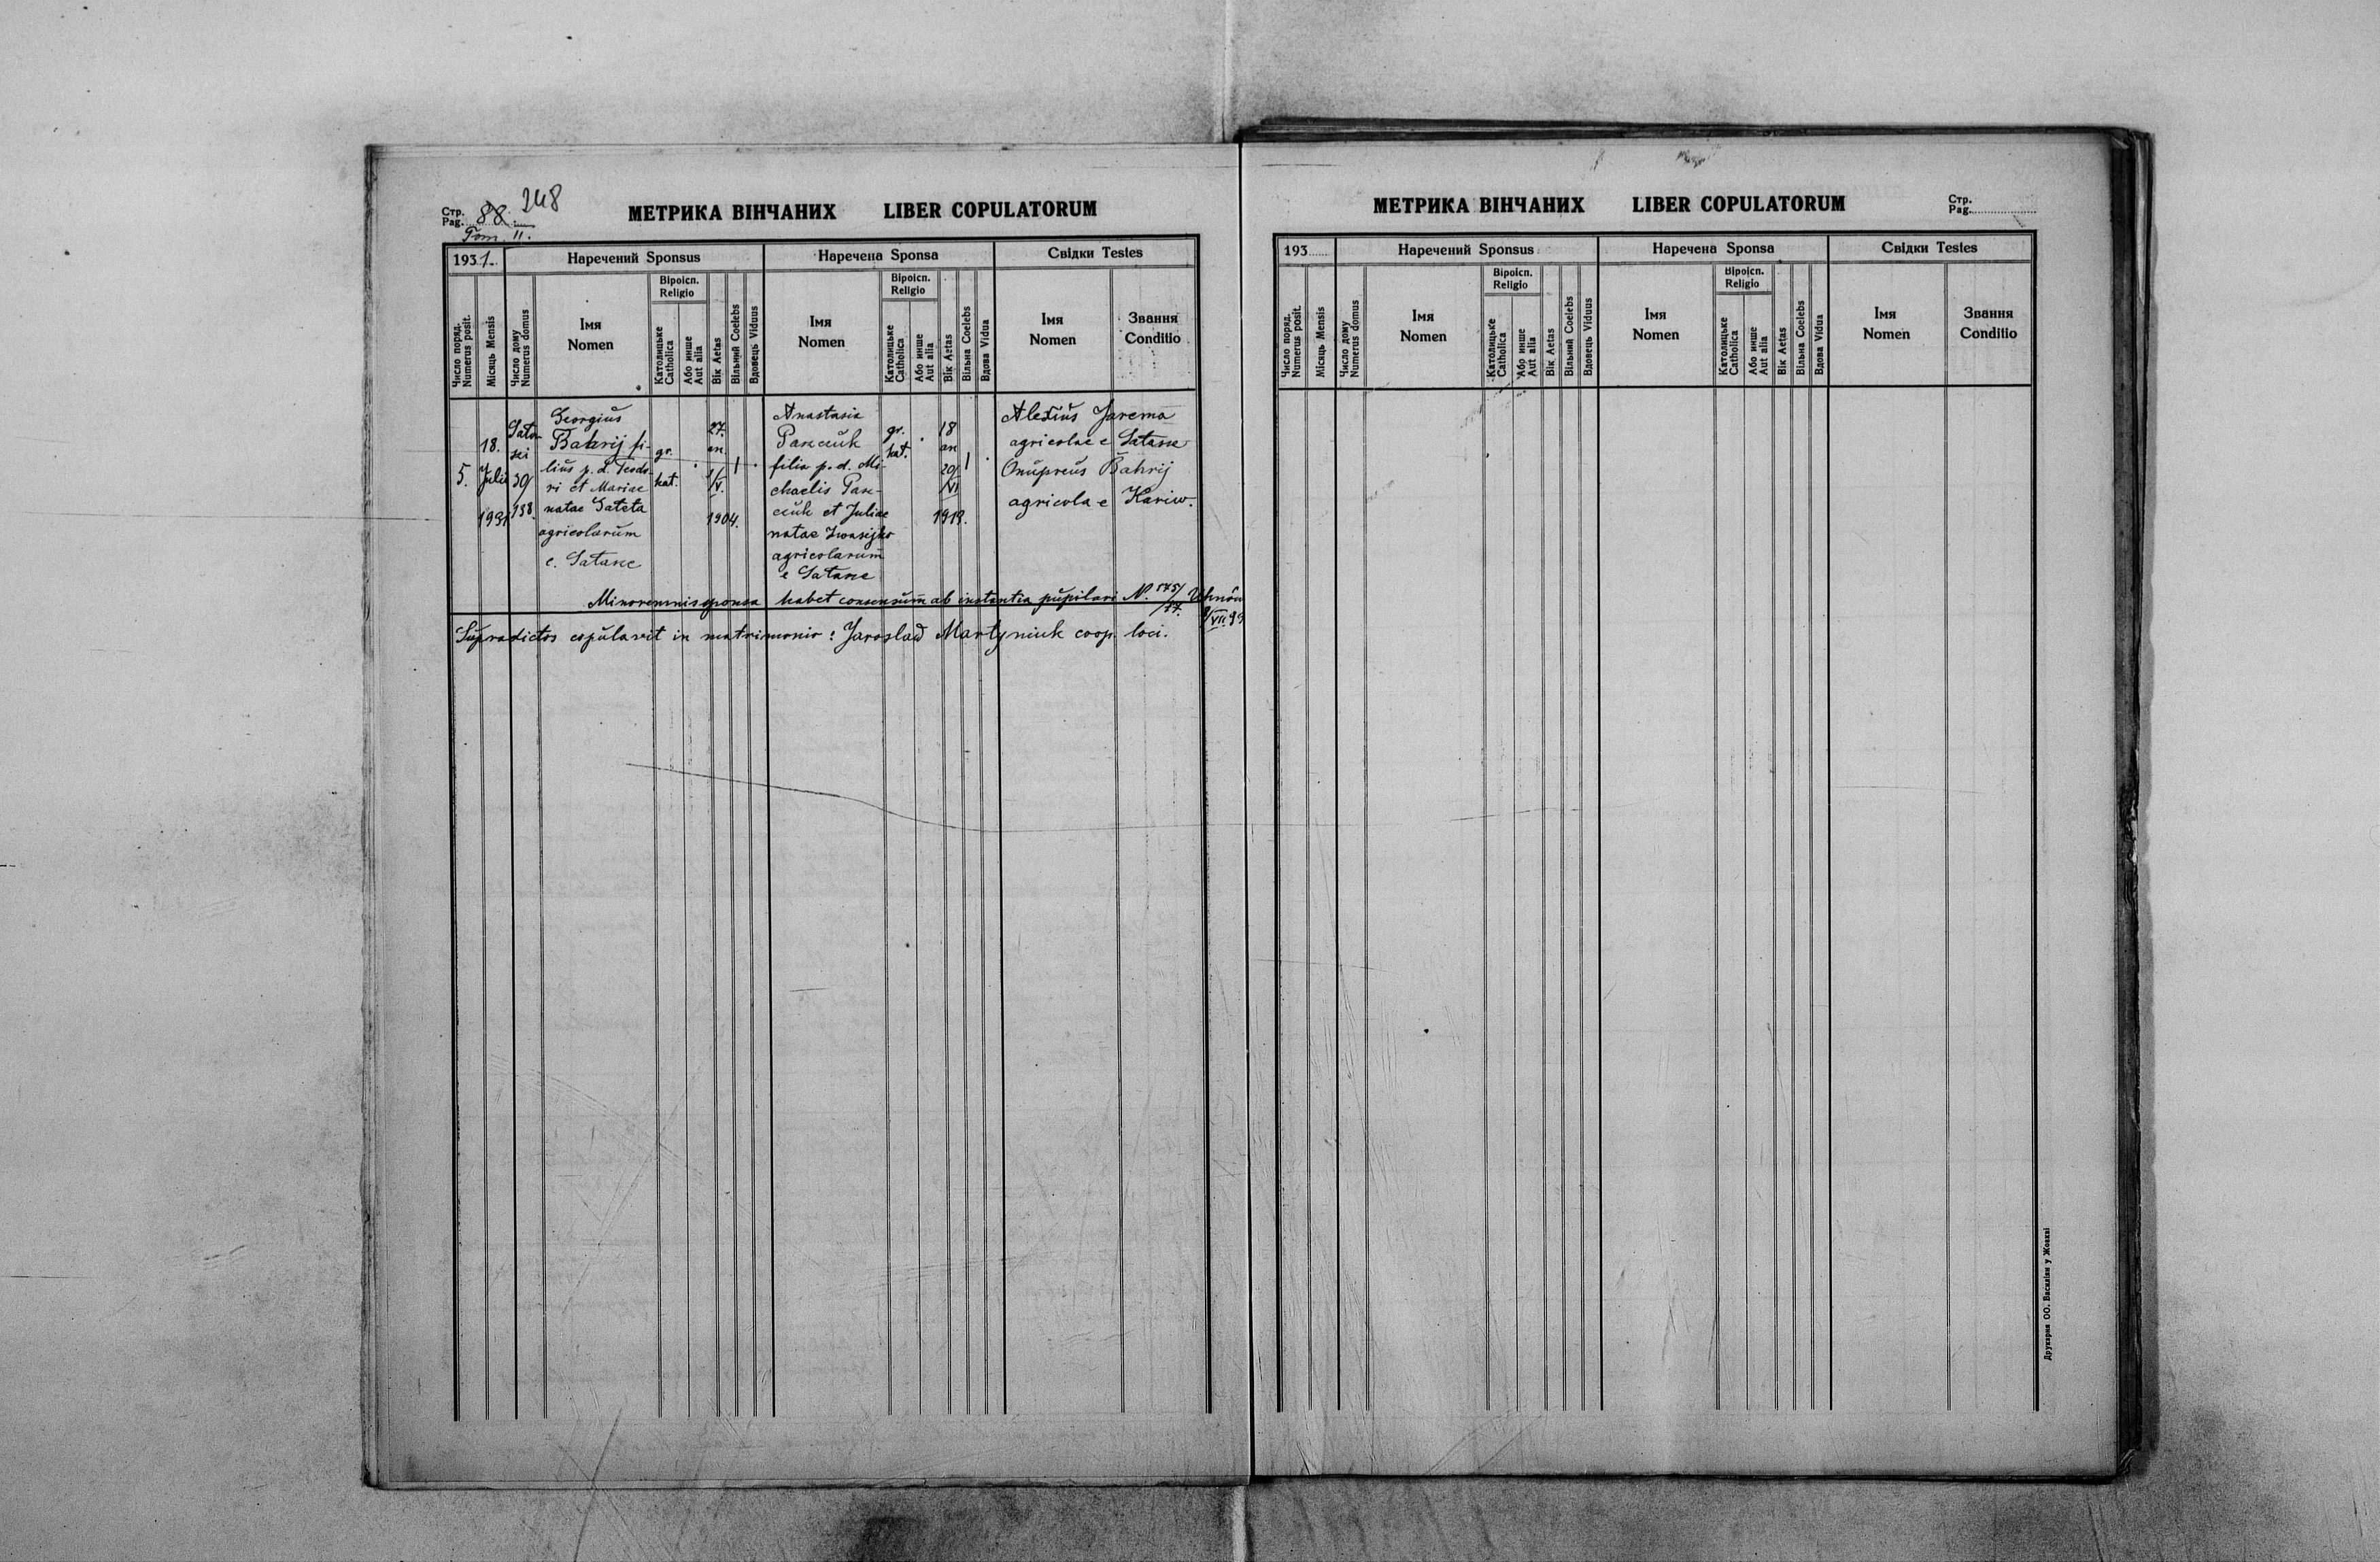 Стр.
Pag. 88 248
Tom. II.
МЕТРИКА ВІНЧАНИХ LIBER COPULATORUM
1931.
Наречений Sponsus
Наречена Sponsa
Свідки Testes
Число поряд.
Numerus posit.
Місяць Mensis
Число дому
Numerus domus
Імя
Nomen
Віроісп.
Religio
Католицьке
Catholica
Або инше
Aut alia
Вік Aetas
Вільний Coelebs
Вдовець Viduus
Імя
Nomen
Віроісп.
Religio
Католицьке
Catholica
Або инше
Aut alia
Вік Aetas
Вільна Coelebs
Вдова Vidua
Імя
Nomen
Звання
Conditio
5.
18.
Julii
1931
39/
198.
Georgius
Bahrij fi-
lius p. d. Teodo-
ri et Mariae
natae
agricolarum
e
gr.
kat.
27.
an.
1/V.
1904.
1
Anastasia
filia p. d. Mi-
chaelis Pan-
et Juliae
natae
agricolarum
e
gr.
kat.
18
an
29/
VI
1913.
1
Alexius Jarema
agricolae e
Onupreus Bahrij
agricola e Kariw.
Minorennis sponsa habet consensum ab instantia pupilari N.
Supradictos copulavit in matrimonio: Jaroslaŭ Martyniuk coop. loci.
МЕТРИКА ВІНЧАНИХ LIBER COPULATORUM
Стр.
Pag.
193
Наречений Sponsus
Наречена Sponsa
Свідки Testes
Число поряд.
Numerus posit.
Місяць Mensis
Число дому
Numerus domus
Імя
Nomen
Віроісп.
Religio
Католицьке
Catholica
Або инше
Aut alia
Вік Aetas
Вільний Coelebs
Вдовець Viduus
Імя
Nomen
Віроісп.
Religio
Католицьке
Catholica
Або инше
Aut alia
Вік Aetas
Вільна Coelebs
Вдова Vidua
Імя
Nomen
Звання
Conditio
Друкарня ОО. Василіян у Жовкві